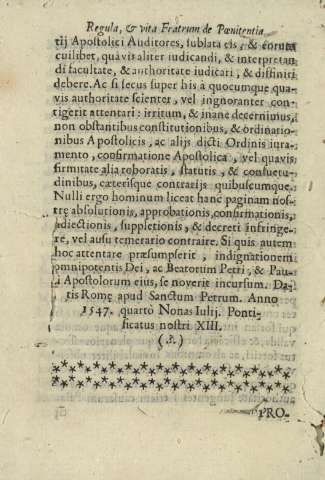 Regula, & vita Fratrum de Pœnitentia
tij Apostolici Auditores, sublata eis, & eorum
cuilibet, quavis aliter iudicandi, & interpretan
di facultate, & authoritate iudicari, & diffiniri
debere. Ac si secus super his a quocumque qua-
vis authoritate scienter, vel ingnoranter con-
tigerit attentari: irritum, & inane decernimus,
non obstantibus constitutionibus, & ordinatio-
nibus Apostolicis, ac alijs dicti Ordinis iura-
mento, confirmatione Apostolica, vel quavis
firmitate alia roboratis, statutis, & consuetu-
dinibus, cæterisque contrarijs quibuscumque.
Nulli ergo hominum liceat hanc paginam nos-
træ absolutionis, approbationis, confirmationis,
adiectionis, suppletionis, & decreti infringe-
re, vel ausu temerario contraire. Si quis autem
hoc attentare præsumpserit, indignationem
omnipotentis Dei, ac Beatorum Petri, & Pau-
li Apostolorum eius, se noverit incursum. Da-
tis Romę apud Sanctum Petrum. Anno
1547. quarto Nonas Iulij. Ponti-
ficatus nostri XIII.
(.&.)
PRO-